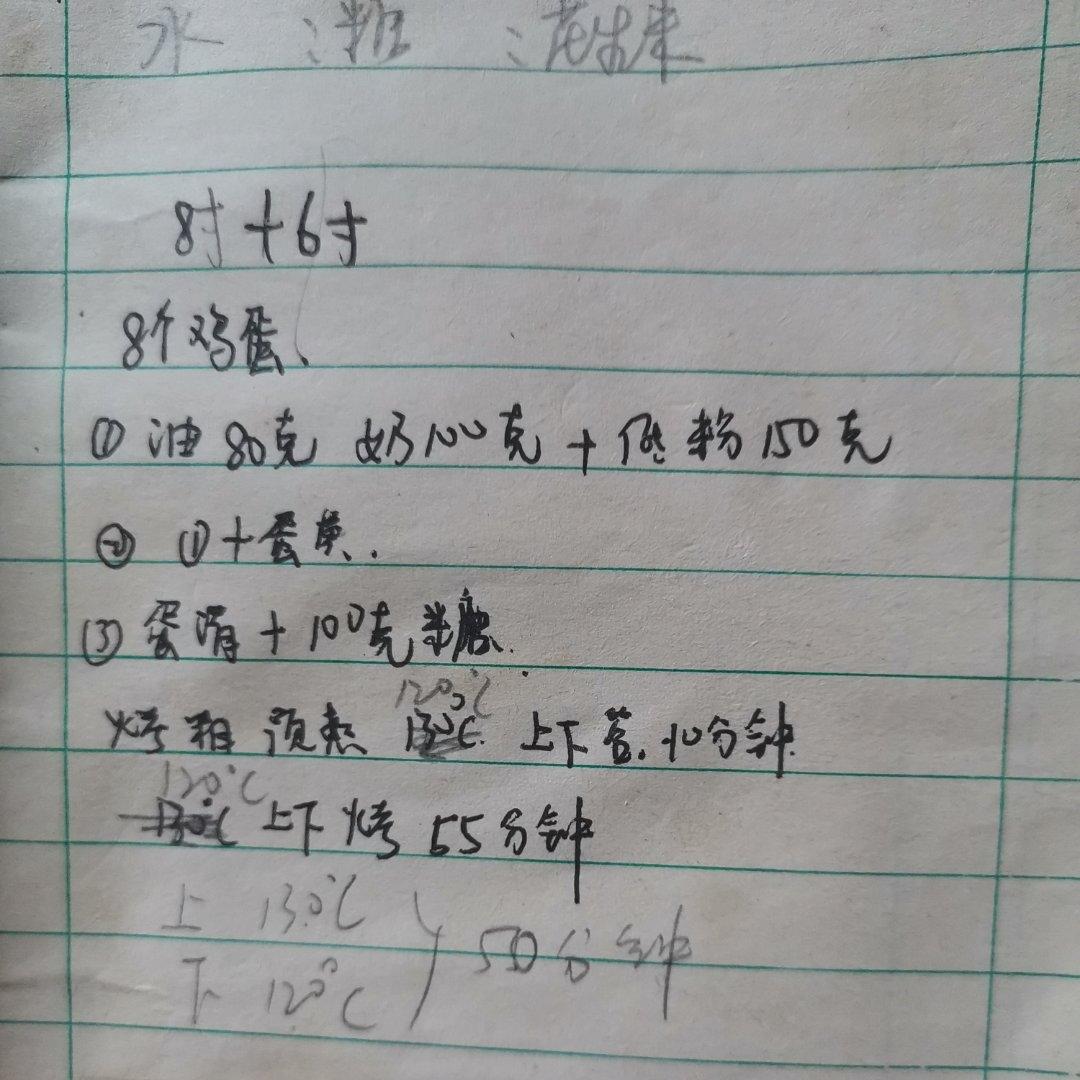 水 :糖 :花生米
8寸+6寸
8个鸡蛋、
① 油80克 奶100克 + 低粉150克
② ①+蛋黄.
③ 蛋清 + 100克糖.
120℃
烤箱 预热 130℃ 上下管. 10分钟
120℃
130℃ 上下烤 55分钟
上 130℃
下 120℃ } 50分钟